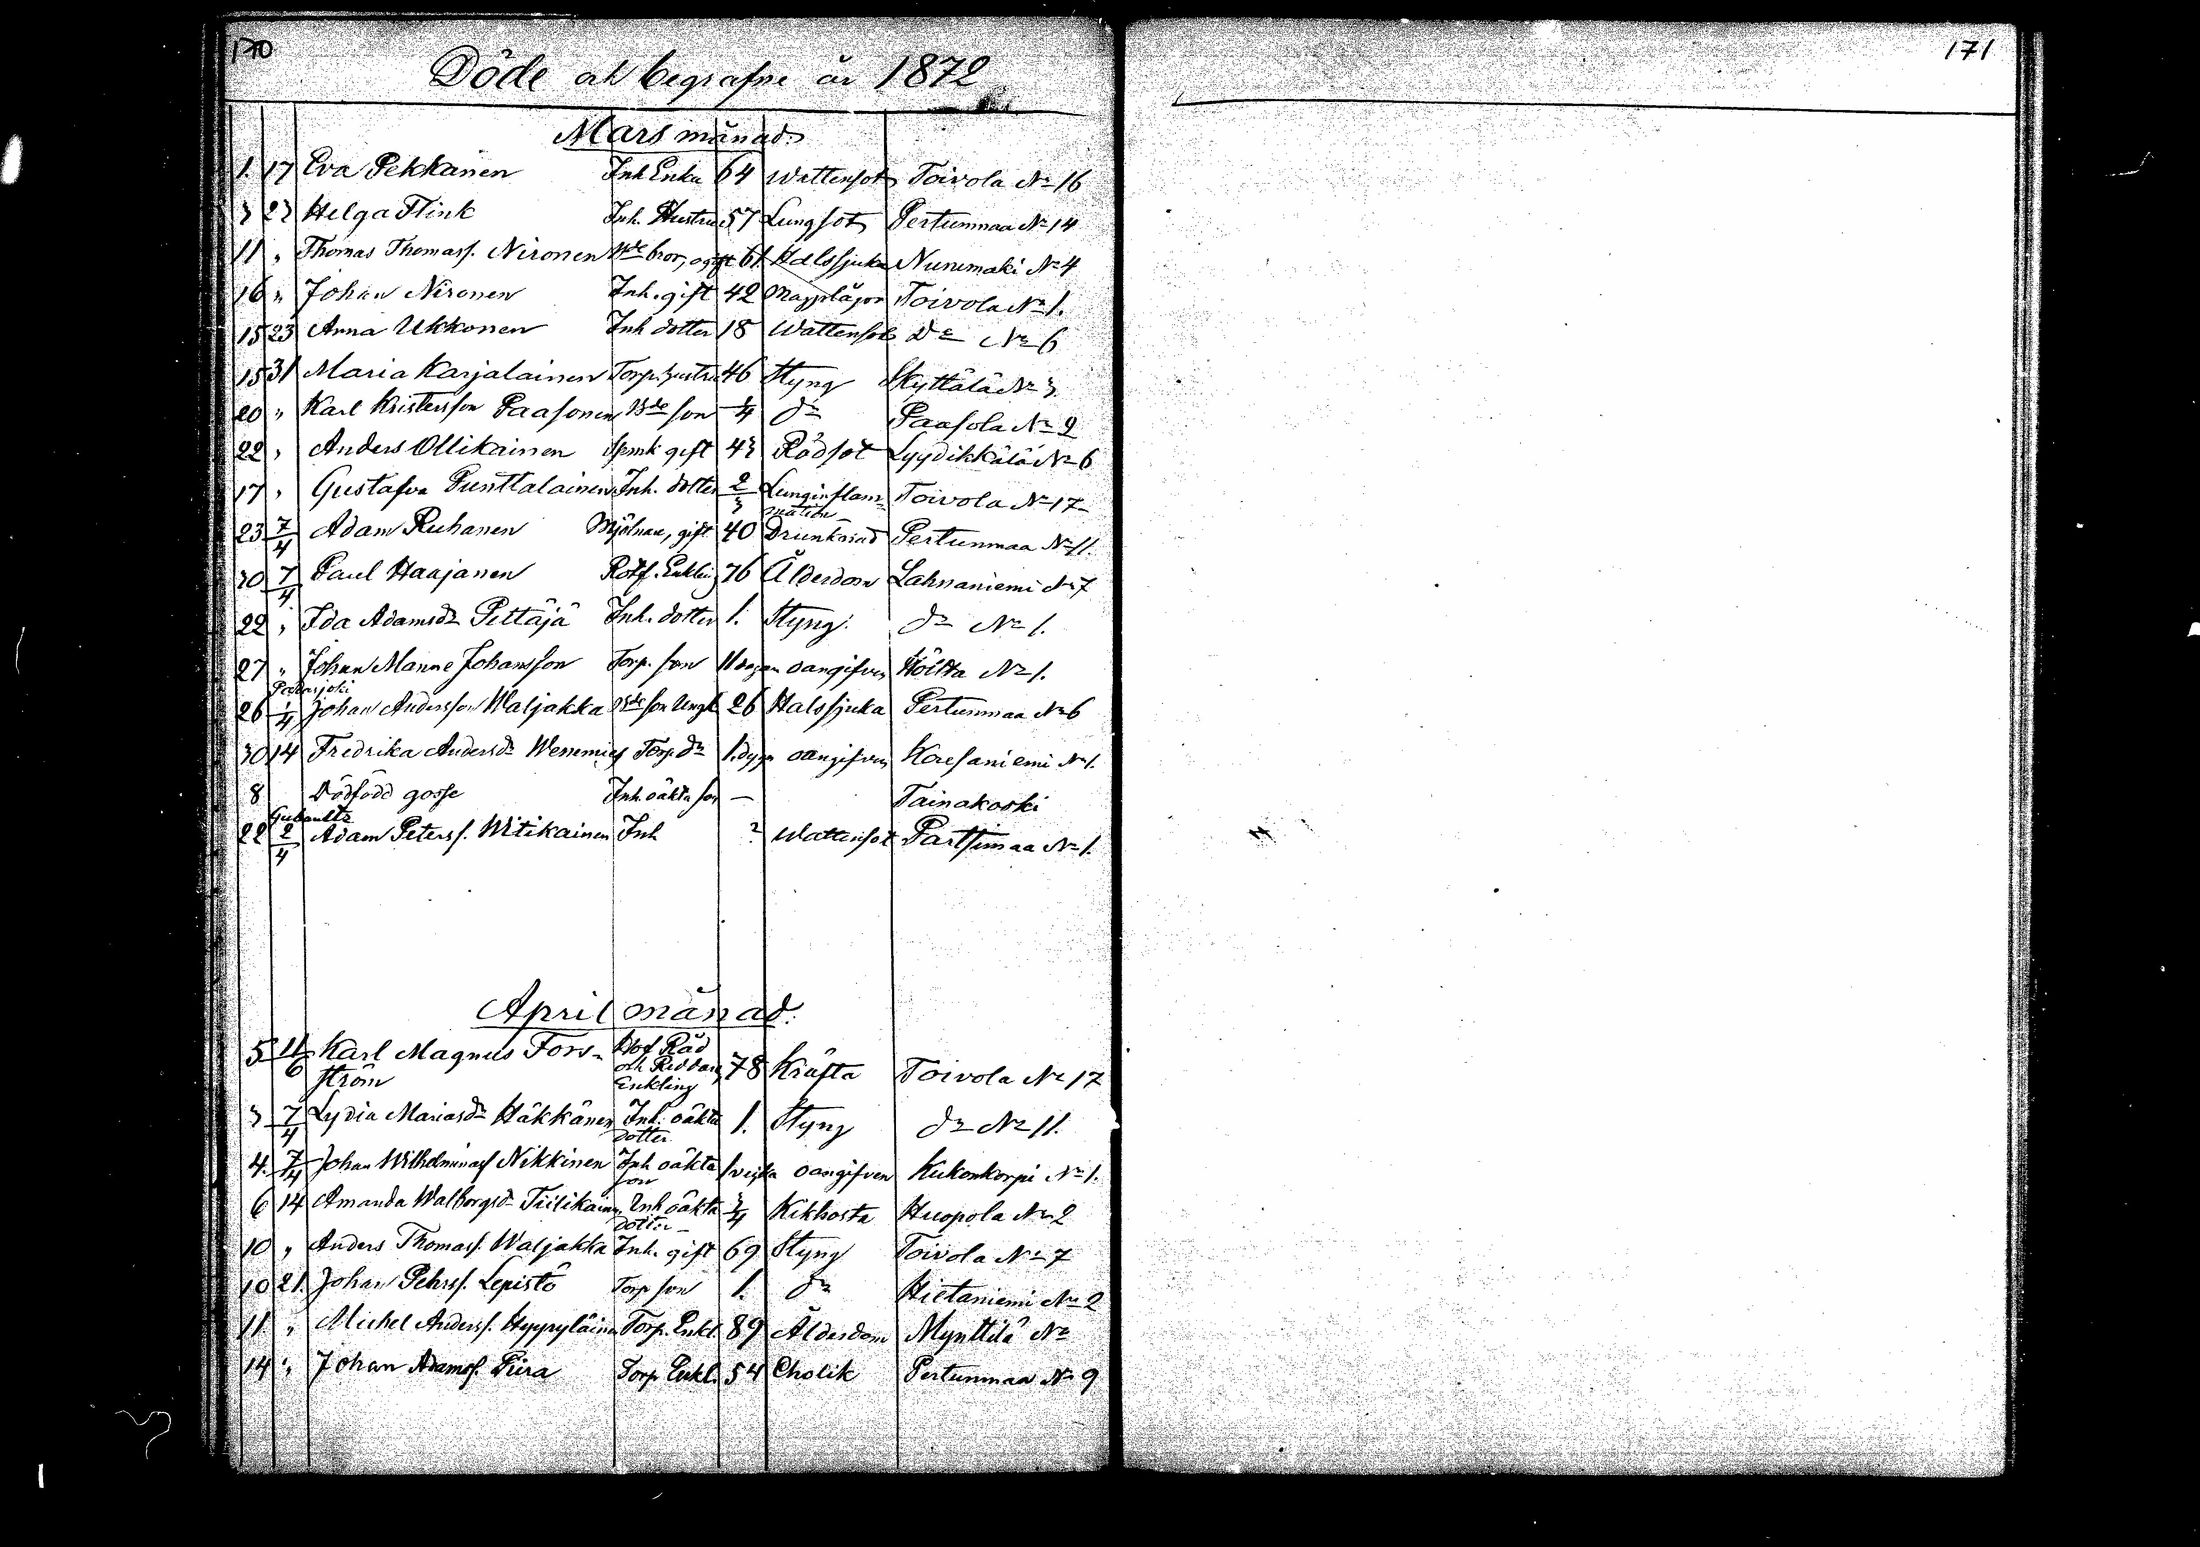 170
171
Döde och begrafne år 1872
Mars månad:
1. 17 Eva Pekkanen Inh Enka 64 Wattensot Toivola No 16
3 23 Helga Flink Inh. Hustru 57 Lungsot Pertunmaa No 14
11 " Thomas Thomass. Nironen Bde bror, ogift 61 Halssjuka Nunemaki No 4
16 " Johan Nironen Inh. gift 42 Toivola No 1.
15 23 Anna Ukkonen Inh dotter 18 Wattensot Do No 6
15 31 Maria Karjalainen Torp. hustru 46 Styng Kyttälä No 3.
20 " Karl Kristersson Paasonen Bde son 1/4 do Paasola No 2
22 " Anders Ollikainen Spmk gift 43 Rödsot Lyydikkälä No 6
17 " Gustafva Punttalainen Inh. dotter 2/3 Lunginflam=
mation Toivola No 17
23 7/4 Adam Ruhanen Mjölnare, gift 40 Drunknad Pertunmaa No 11.
30 7/4 Paul Haajanen Rotf. Enkling 76 Ålderdom Lahnaniemi No 7
22 " Ida Adamsdr Pettäjä Inh. dotter 1. Styng. do No 1.
27 " Johan Manne Johansson Torp. son 11 dagar oangifven Höltta No 1.
Padasjoki
26 1/4 Johan Andersson Waljakka Bde son Ungk 26 Halssjuka Pertunmaa No 6
30 14 Fredrika Andersdr Torp. dr 1. dygn oangifven Koresaniemi No 1.
8 Dödfödd gosse Inh. oäkta son — Tainakoski
22 2/4 Adam Peterss. Witikainen Inh ? Wattensot Partsimaa No 1.
April månad:
5 11/6 Karl Magnus Fors- Hof Råd
ström och Riddare, 78 Kräfta Toivola No 17
Enkling
3 7/4 Lydia Mariasdr Häkkänen Inh. oäkta 1. Styng do No 11.
dotter
4. 7/4 Johan Wilhelminas Nikkinen Inh oäkta 1 vecka oangifven Kukonkorpi No 1.
son
6 14 Amanda Walborgsdr Tiilikainen Inh oäkta 3/4 Kikhosta Huopola No 2
dotter
10 " Anders Thomass. Waljakka Inh. gift 69 Styng Toivola No 7
10 21. Johan Pehrss. Lepistö Torp son 1. do Hietaniemi No 2
11 " Michel Anderss. Hyyryläinen Torp. Enkl. 89 Ålderdom Mynttilä No
14 " Johan Adamss. Piira Torp Enkl. 54 Cholik Pertunmaa No 9